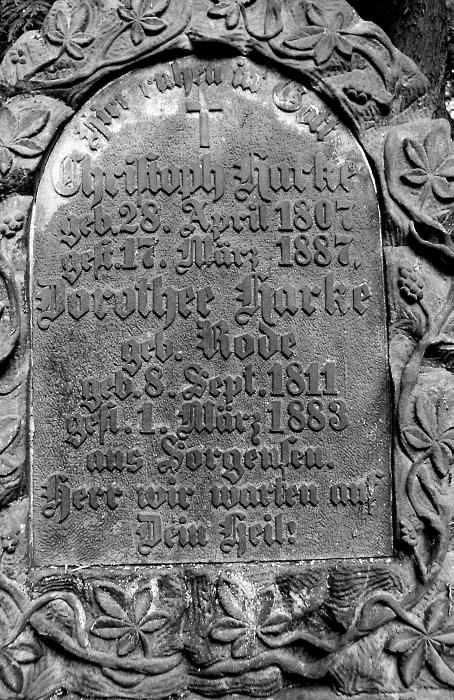 Hier ruhen in Gott
Christoph Harke
geb. 28. April 1807
gest. 17. März 1887.
Dorothee Harke
geb. Rode
geb. 8. Sept. 1811
gest. 1. März 1883
aus Sorgensen.
Herr wir warten auf
Dein Heil!